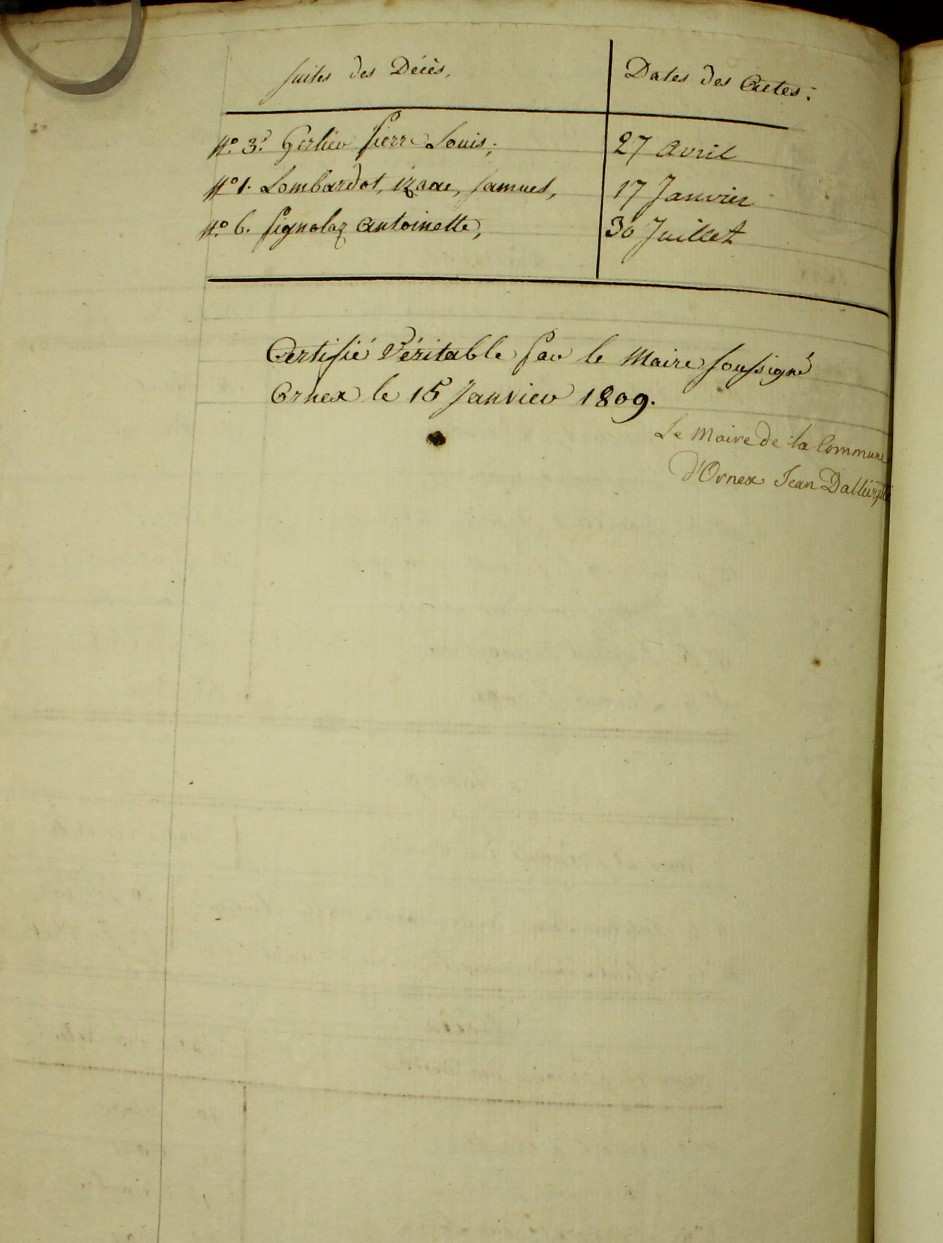 suites des Décès, Dates des Actes:
No. 3. Gerlier pierre Louis; 27 avril
No 1. Lombardot, izaac, samuel, 17 Janvier
No. 6. pignolaz antoinette, 30 Juillet
Certifié Véritable par le Maire soussigné
Ornex le 15 Janvier 1809.
Le Maire de la Commune
d'Ornex Jean